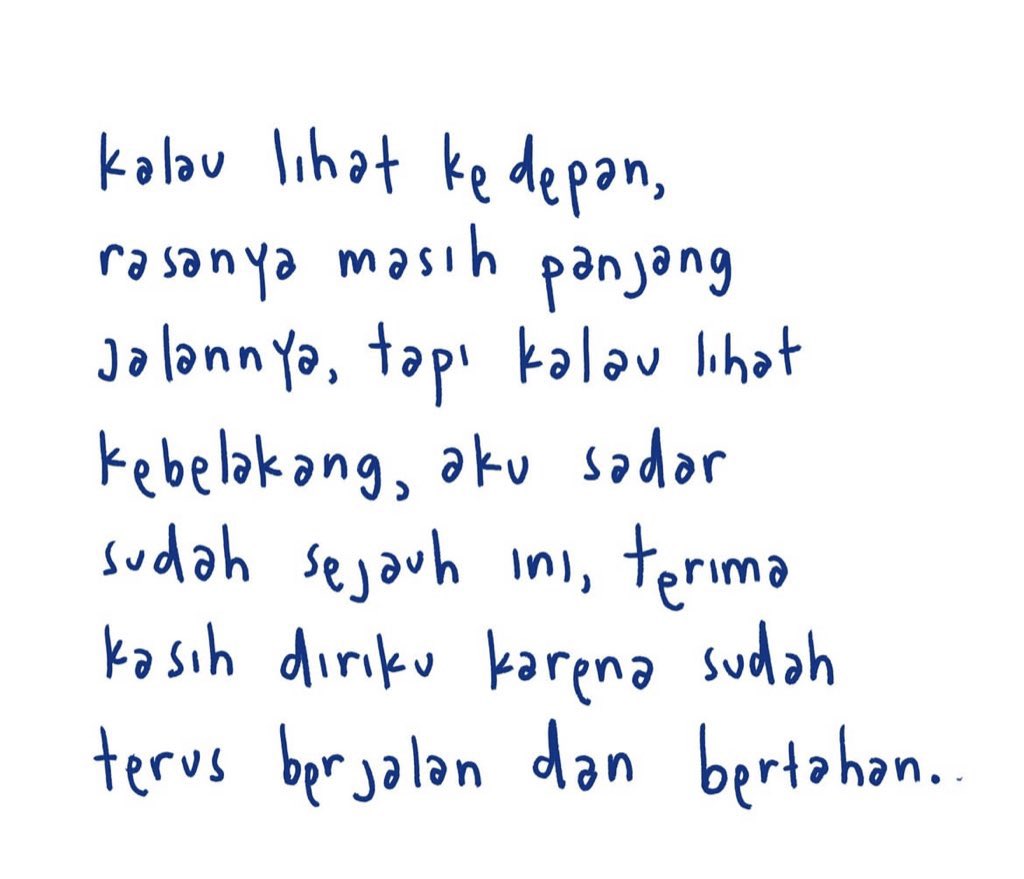 kalau lihat ke depan,
rasanya masih panjang
jalannya, tapi kalau lihat
kebelakang, aku sadar
sudah sejauh ini, terima
kasih diriku karena sudah
terus berjalan dan bertahan..